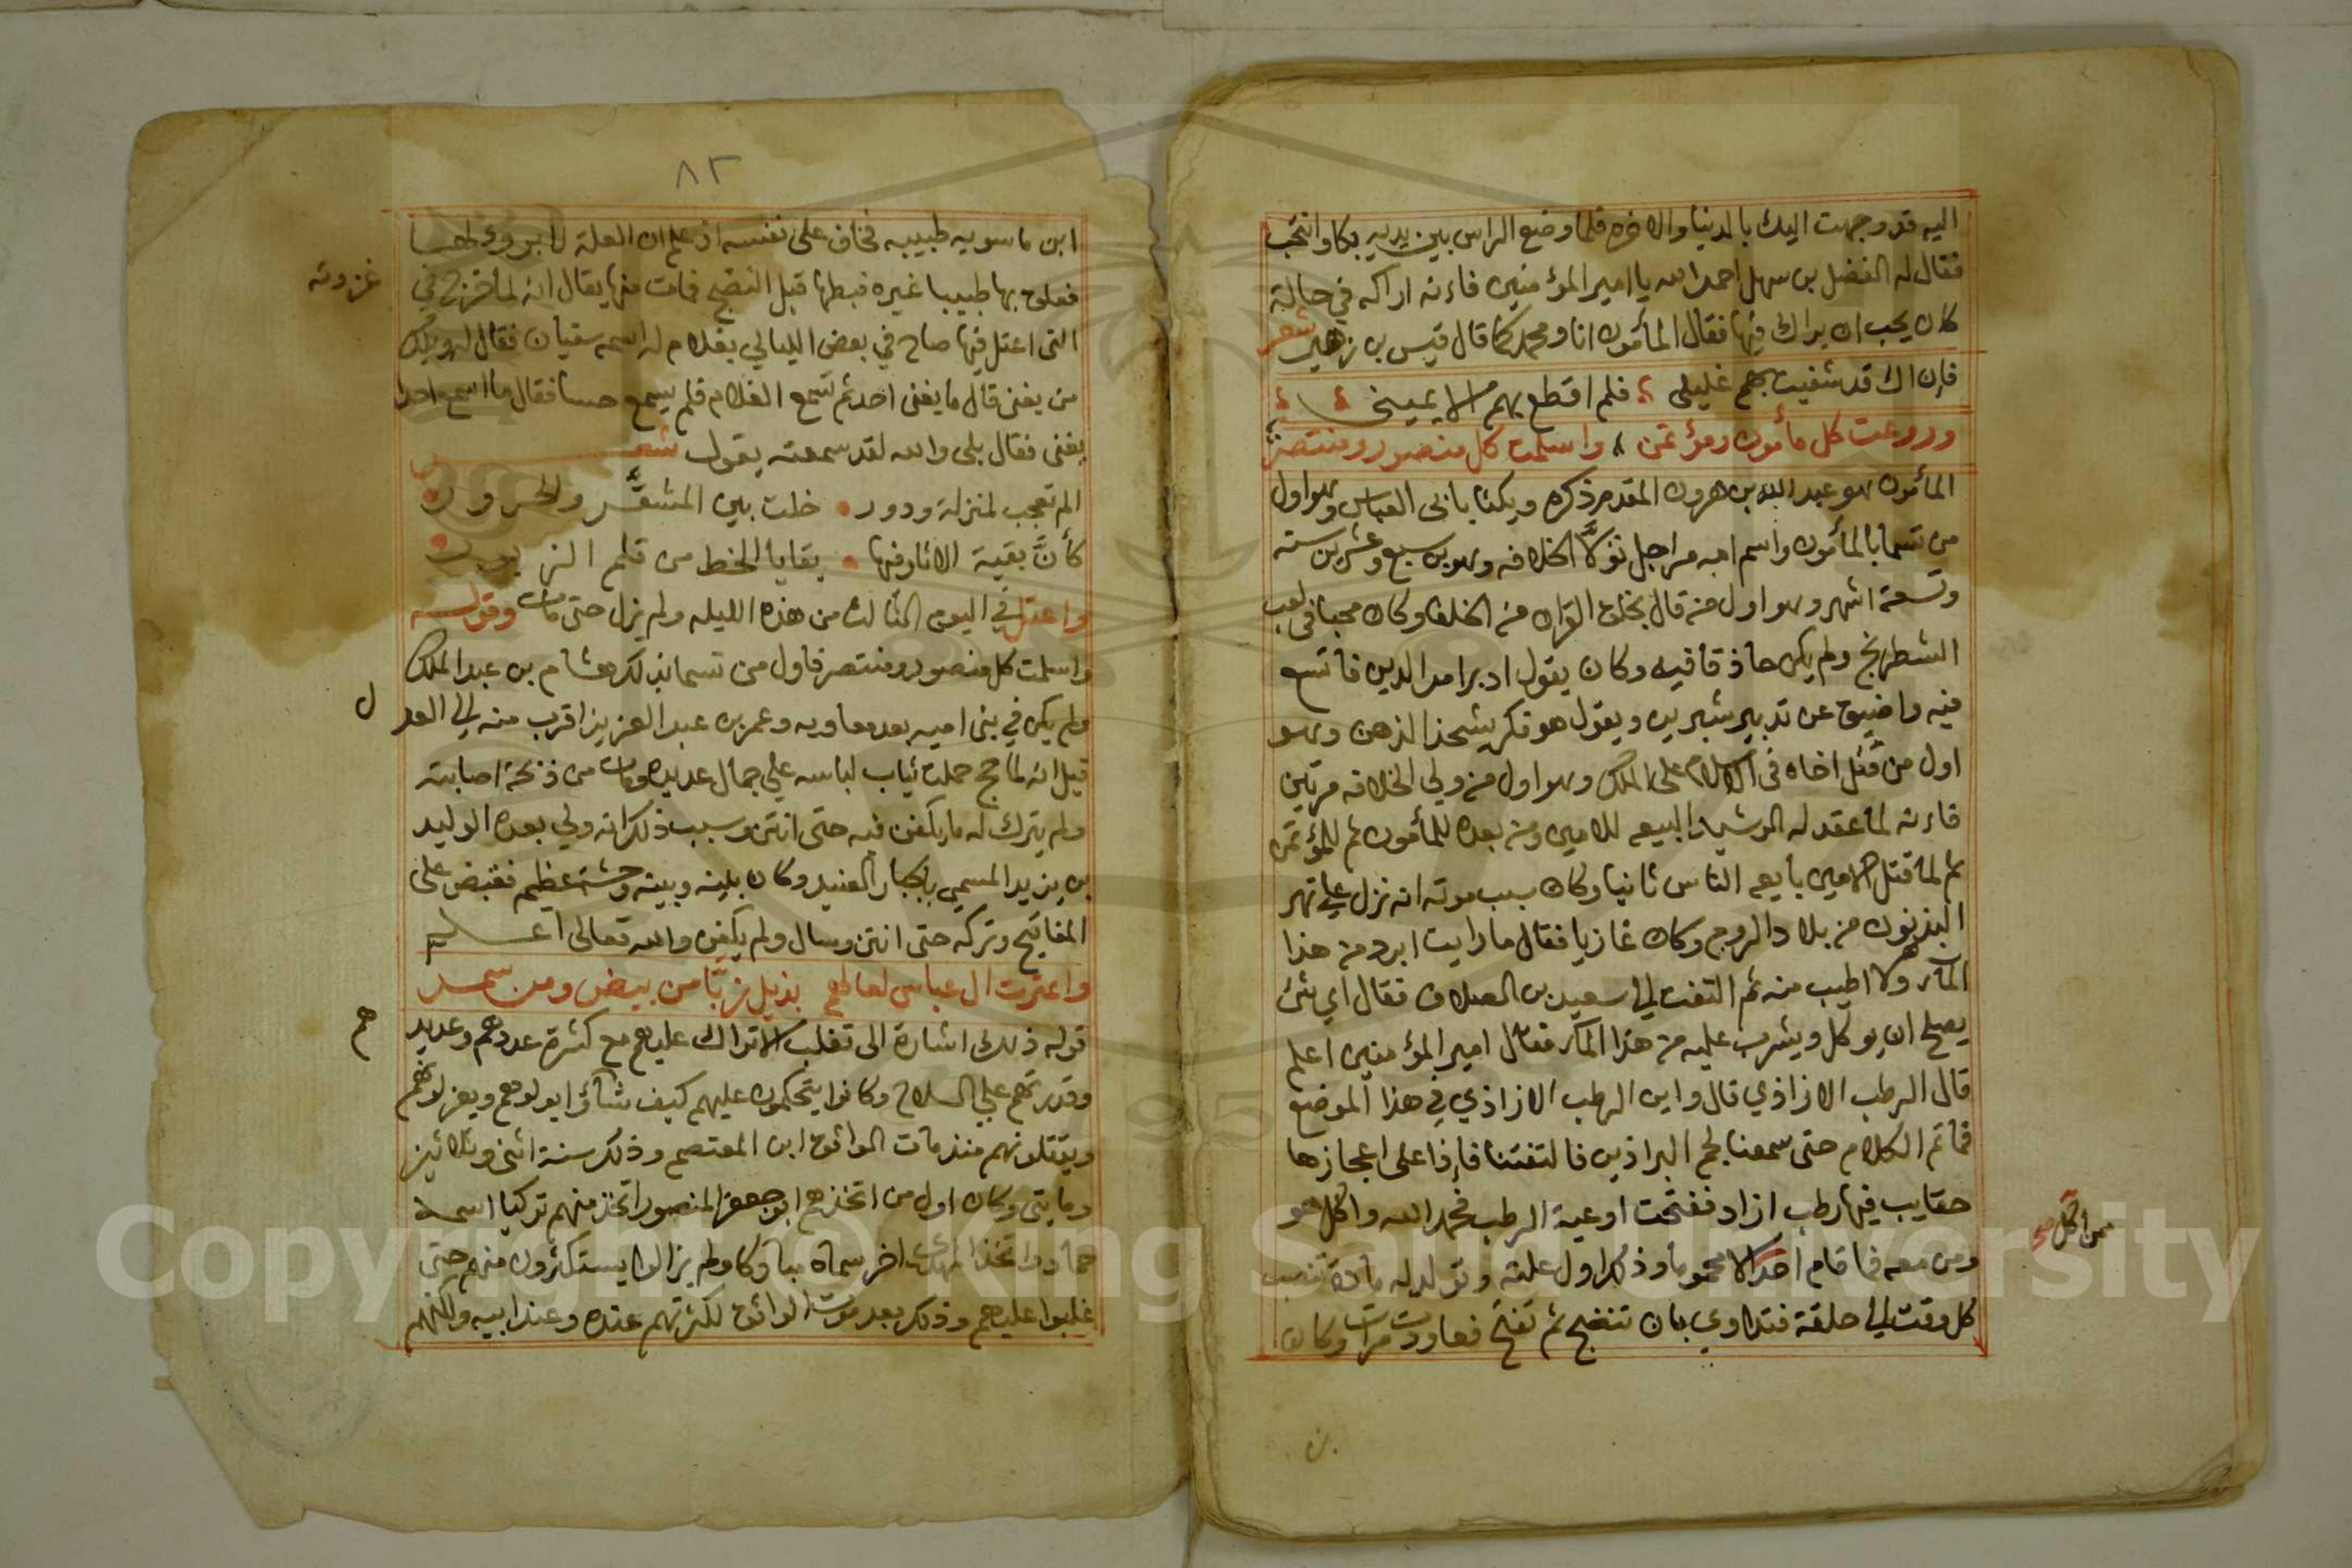 اليه قد وجهت اليك بالدنيا والاخره فلما وضع الراس بين يديه بكا وانتحب
فقال له الفضل بن سهل احمد الله يا امير المؤمنين فاءنه اراكه في حالة
كان يحب ان يراك فيها فقال المأمون انا ومحمد كما قال قيس بن زهير شعر
فإن اك قد شفيت بهم غليلي فلم اقطع بهم الا يميني
وروعت كل مأمون ومؤتمن واسلمت كل منصور ومنتصر
المأمون هو عبد الله بن هرون المقدم ذكره ويكنا بابى العباس وهو اول
من تسما بالمأمون واسم امه مراجل تولا الخلافه وهو بن سبع وعشرين سنه
وتسعة اشهر وهو اول من قال بخلق القران من الخلفا وكان محبا فى لعب
الشطرنج ولم يكن حاذقا فيه وكان يقول ادبر امر الدين فاتسع
فيه واضيق عن تدبير شبرين ويقول هو فكر يشحذ الذهن وهو
اول من قتل اخاه فى الاسلام على الملك وهو اول من ولي الخلافه مرتين
فاءنه لما عقد له الرشيد البيعه للامين ومن بعده للمأمون ثم للمؤتمن
ثم لما قتل الامين بايعه الناس ثانيا وكان سبب موته انه نزل علي نهر
البذندون من بلاد الروم وكان غازيا فقال ما رايت ابرد من هذا
المآء ولا اطيب منه ثم التفت الي سعيد بن العلاف فقال اي شئ
يصلح ان يوكل ويشرب عليه من هذا المآء فقال امير المؤمنين اعلم
قال الرطب الازاذي قال واين الرطب الازاذي في هذا الموضع
فما تم الكلام حتى سمعنا لجم البراذين فالتفتنا فاإذا على اعجازها
حقايب فيها رطب ازاد ففتحت اوعية الرطب فحمد الله واكل هو
ومن معه فما قام احد الا محموما وذلك اول علته وتولد له مادة تنصب
ممن اكل صح
كل وقت الي حلقة فتداوي بان تنضج ثم تفتح فعاودت مرات وكان
٨٢
ابن ماسويه طبيبه فخاف على نفسه اذ علم ان العلة لا برؤ لها
فعلوج بها طبيبا غيره فبطها قبل النضج فمات منها يقال انه لما خرج في
غزوته
التى اعتل فيها صاح في بعض الليالي بغلام له اسمه سفيان فقال له ويلك
من يغنى قال ما يغنى احد ثم تسمع الغلام فلم يسمع حسا فقال ما اسمع احدا
يغنى فقال بلى والله لقد سمعته يقول شعر
الم تعجب لمنزلة ودور خلت بين المشقر والحرور
كأنَّ بقية الاثار فيها بقايا الخط من قلم الزبور
واعتل في اليوم الثالث من هذه الليله ولم يزل حتى مات وقوله
واسلمت كل منصور ومنتصر فاول من تسما بذلك هشام بن عبد الملك
ولم يكن في بنى اميه بعد معاويه وعمر بن عبد العزيز اقرب منه الي العد
ل
قيل انه لما حج حملت ثياب لباسه علي جمال عديده ومات من ذبحة اصابته
ولم يترك له ما يكفن فيه حتى انتن وسبب ذلك انه ولي بعده الوليد
بن يزيد المسمي بالجبار العنيد وكان بينه وبينه وحشة عظيم فقبض على
المفاتيح وتركه حتى انتن وسال ولم يكفن والله تعالى اعلم
واعثرت ال عباس لعا لهم بذيل زبّا من بيض ومن سمر
قوله ذلك اشارة الى تغلب الاتراك عليهم مع كثرة عددهم وعديد
هم
وقدرتهم على السلاح وكانوا يتحكمون عليهم كيف شاؤا يولوهم ويعزلوهم
ويقتلونهم منذ مات الواثق ابن المعتصم وذلك سنة اثنى وثلاثين
ومايتى وكان اول من اتخذهم ابو جعفر المنصور اتخذ منهم تركيا اسمه
حماد واتخذ المهدى اخر سماه مباركا ولم يزالوا يستكثرون منهم حتى
غلبوا عليهم وذلك بعد موت الواثق لكثرتهم عنده وعند ابيه ولكنهم